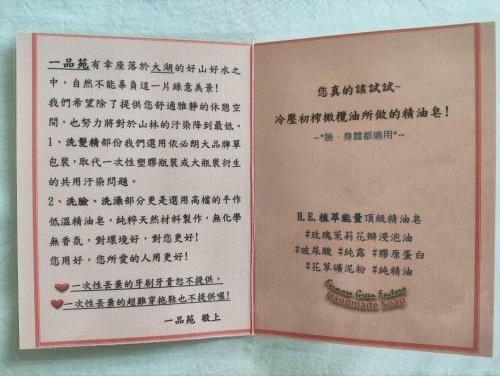 一品苑有幸座落於大湖的好山好水之
中，自然不能辜負這一片綠意美景!
我們希望除了提供您舒適雅靜的休憩空
間，也努力將對於山林的汙染降到最低。
1、洗髮精部份我們選用依必朗大品牌單
包裝，取代一次性塑膠瓶裝或大瓶裝衍生
的共用汙染問題。
2、洗臉、洗澡部分更是選用高檔的手作
低溫精油皂，純粹天然材料製作，無化學
無香氛，對環境好，對您更好!
您用好，您所愛的人用更好!
一次性丟棄的牙刷牙膏恕不提供，
一次性丟棄的超難穿拖鞋也不提供喔!
一品苑 敬上
您真的該試試~
冷壓初榨橄欖油所做的精油皂!
~*臉、身體都適用*~
H.E.植萃能量頂級精油皂
#玫瑰茉莉花瓣浸泡油
#玻尿酸 #純露 #膠原蛋白
#花草礦泥粉 #純精油
Handmade Soap